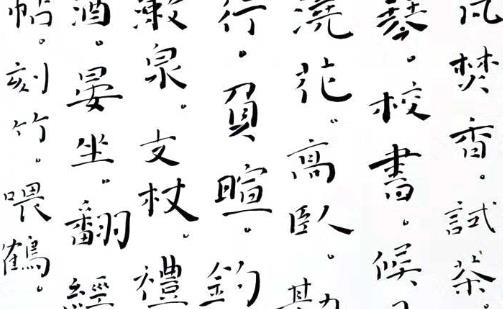 凡焚香。試茶。
琴。校書。候
澆花。高臥。勘
行。負暄。釣
漱泉。支杖。禮
酒。晏坐。翻經
帖。刻竹。喂鶴。